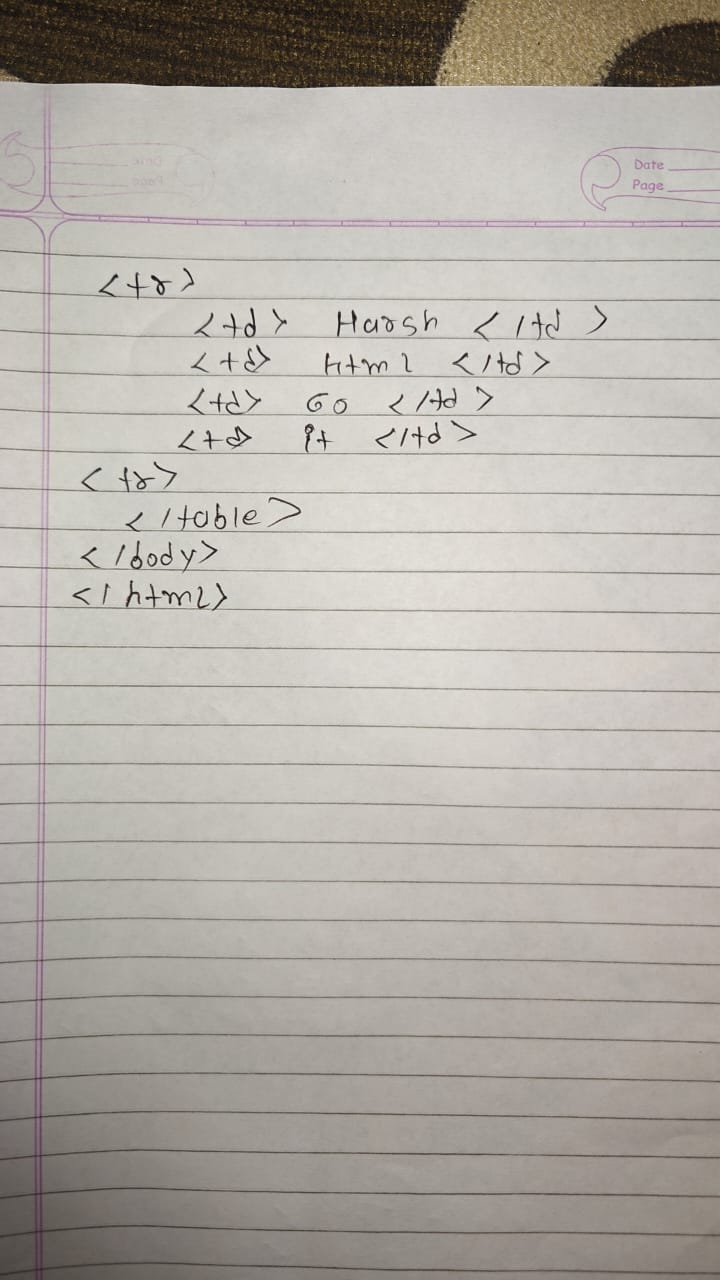 Date
Page
<tr>
<td> Harsh </td>
<td> html </td>
<td> 60 </td>
<td> it </td>
<tr>
</table>
</body>
</html>